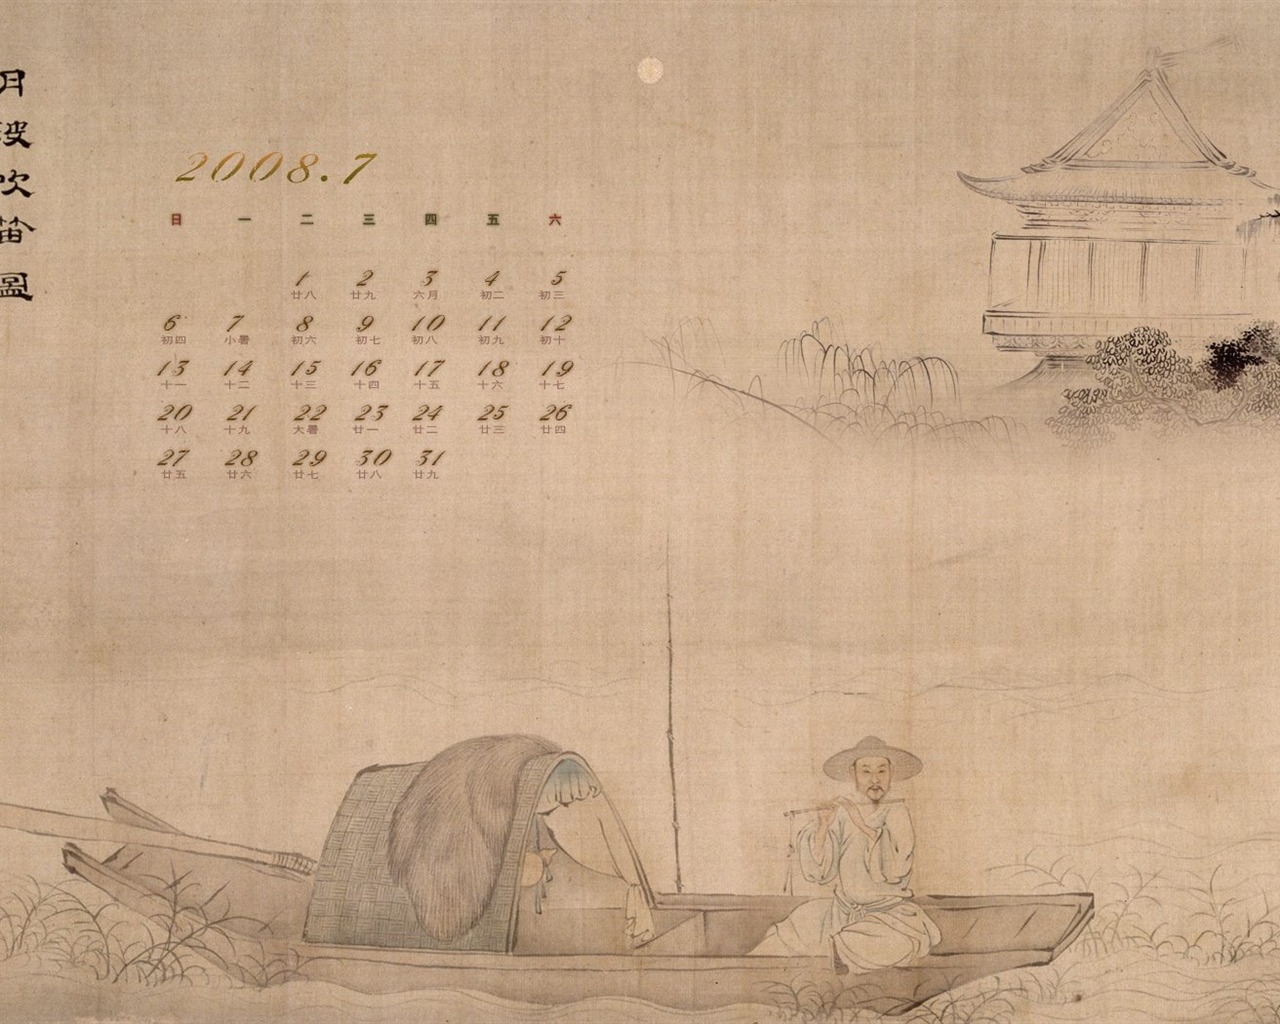 月波吹笛圖
2008.7
日 一 二 三 四 五 六
1 2 3 4 5
廿八 廿九 六月 初二 初三
6 7 8 9 10 11 12
初四 小暑 初六 初七 初八 初九 初十
13 14 15 16 17 18 19
十一 十二 十三 十四 十五 十六 十七
20 21 22 23 24 25 26
十八 十九 大暑 廿一 廿二 廿三 廿四
27 28 29 30 31
廿五 廿六 廿七 廿八 廿九